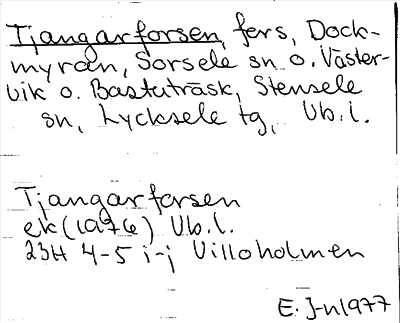 Tjangarforsen, fors, Dock-
myran, Sorsele sn o. Väster-
vik o. Bastuträsk, Stensele
sn, Lycksele tg, Vb. l.
Tjangarforsen
ek (1976) Vb. l.
23H 4-5 i-j Villoholmen
E. J-n 1977